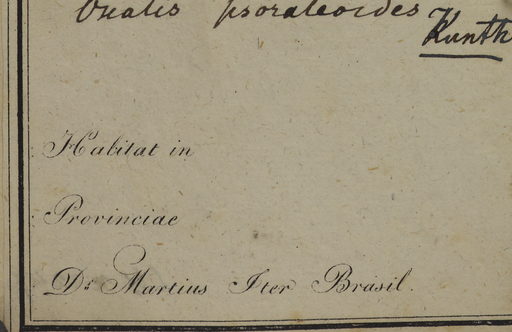 Oxalis psoraleoides Kunth
Habitat in
Provinciae
Dr. Martius Iter Brasil.